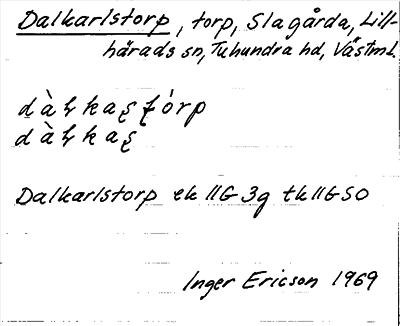 Dalkarlstorp, torp, Slagårda, Lill-
härads sn, Tuhundra hd, Västml.
Dalkarlstorp ek 11G 3g tk 11G SO
Inger Ericson 1969